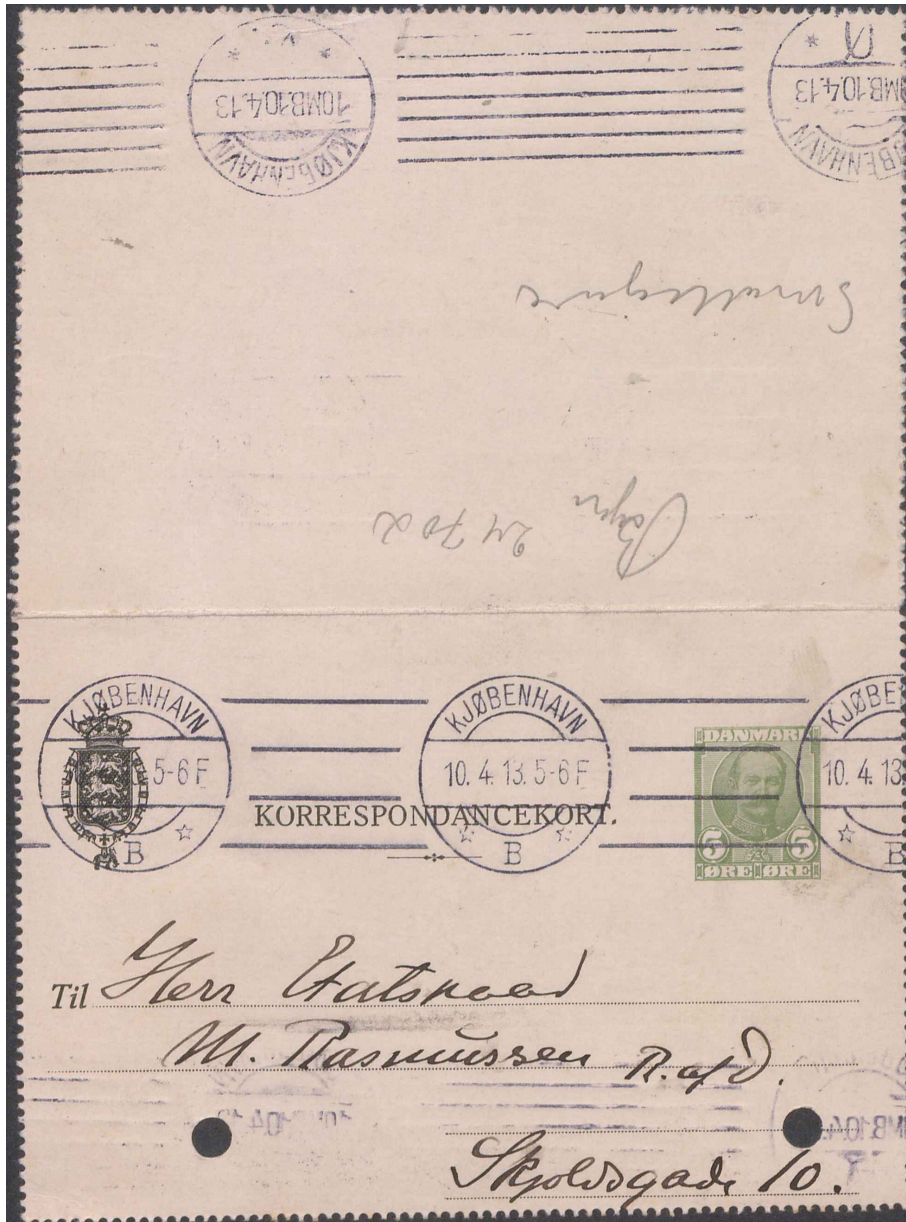 KJØBENHAVN
10MB.10.4.13
KJØBENHAVN
10MB.10.4.13
Smallegade
2470a
KJØBENHAVN
5-6 F
B
KJØBENHAVN
10. 4. 13. 5-6 F
B
KJØBE
10. 4. 13
B
DANMARK
5 5
ØRE ØRE
KORRESPONDANCEKORT.
Til Herr Etatsraad
M. Rasmussen R. af D.
Skjoldsgade 10.